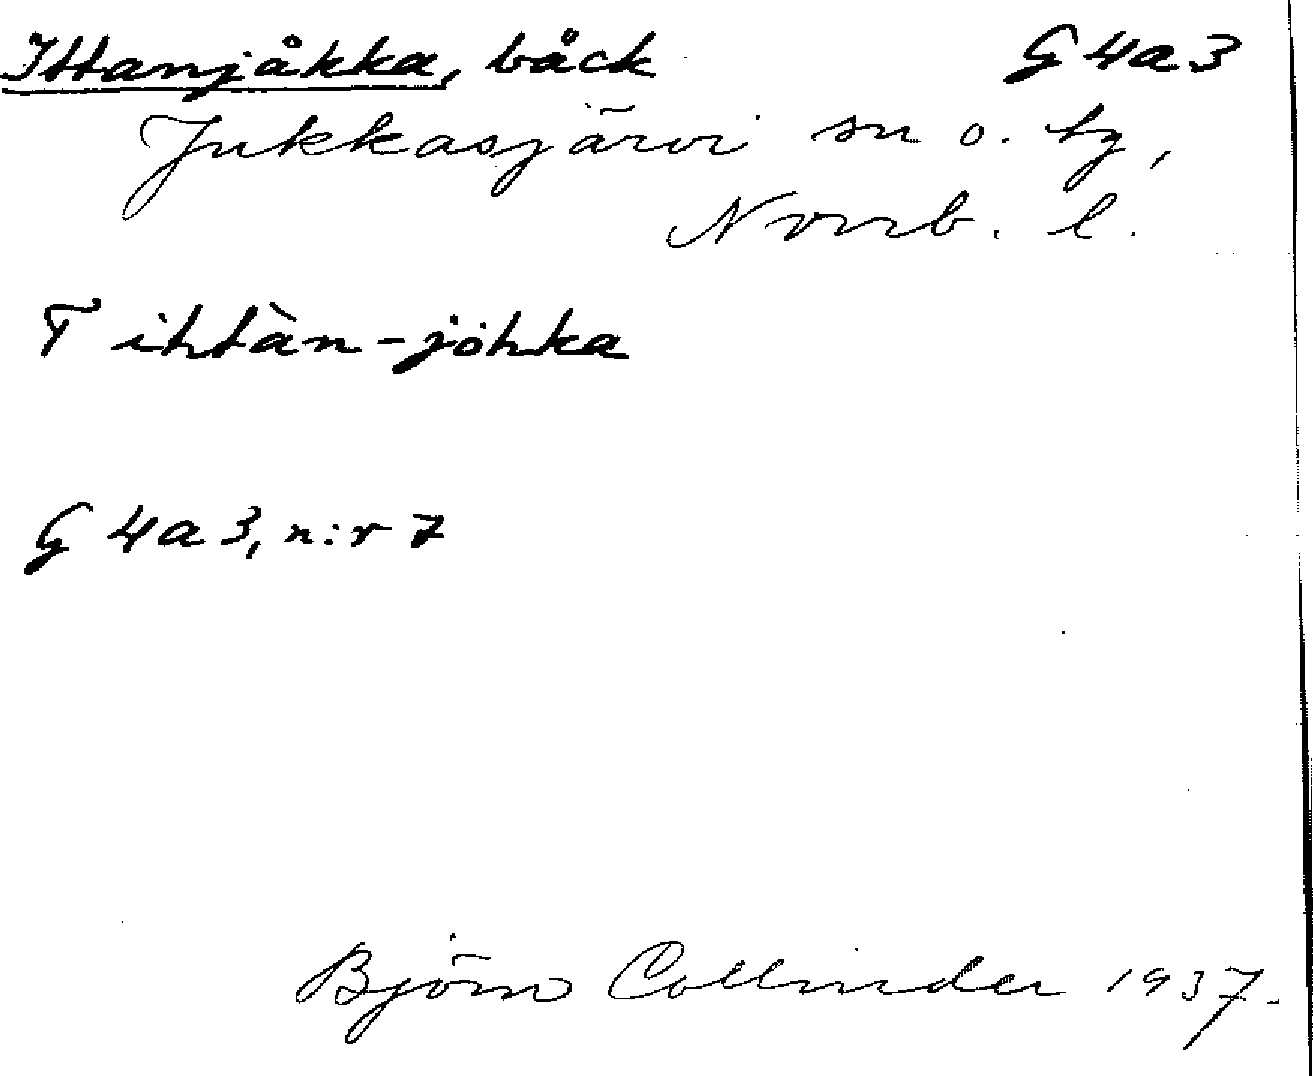 Ittanjåkka, bäck G4a3
Jukkasjärvi sn o. tg,
Norrb. l.
T ihtàn-johka
G 4a3, n:r 7
Björn Collinder 1937.